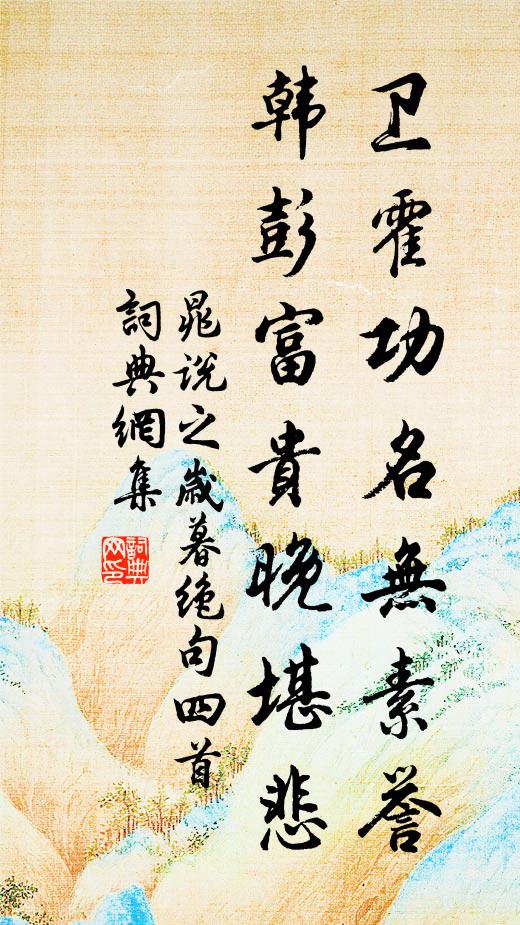 卫霍功名無素誉
韩彭富貴晚堪悲
晁说之歲暮绝句四首
詞典網集
詞典
网印